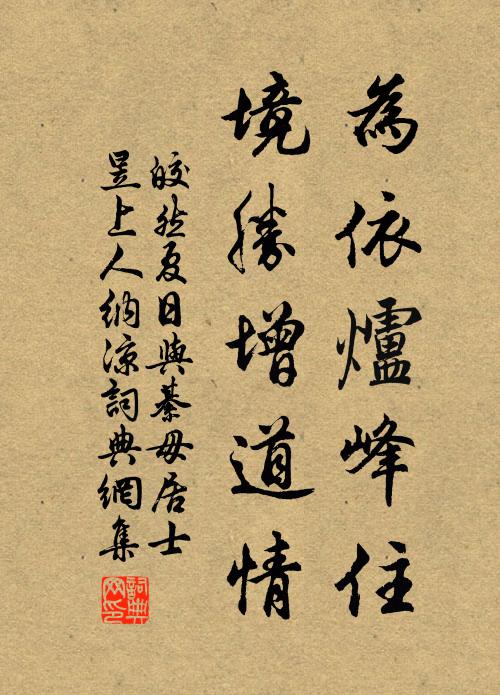 為依爐峰住
境勝增道情
皎然夏日與綦毋居士
昱上人納涼詞典網集
詞典
网印